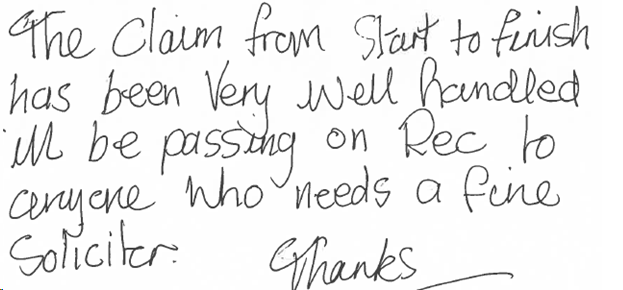 The Claim from Start to finish
has been Very Well handled
ill be passing on Rec to
anyone who needs a fine
Soliciter. Thanks